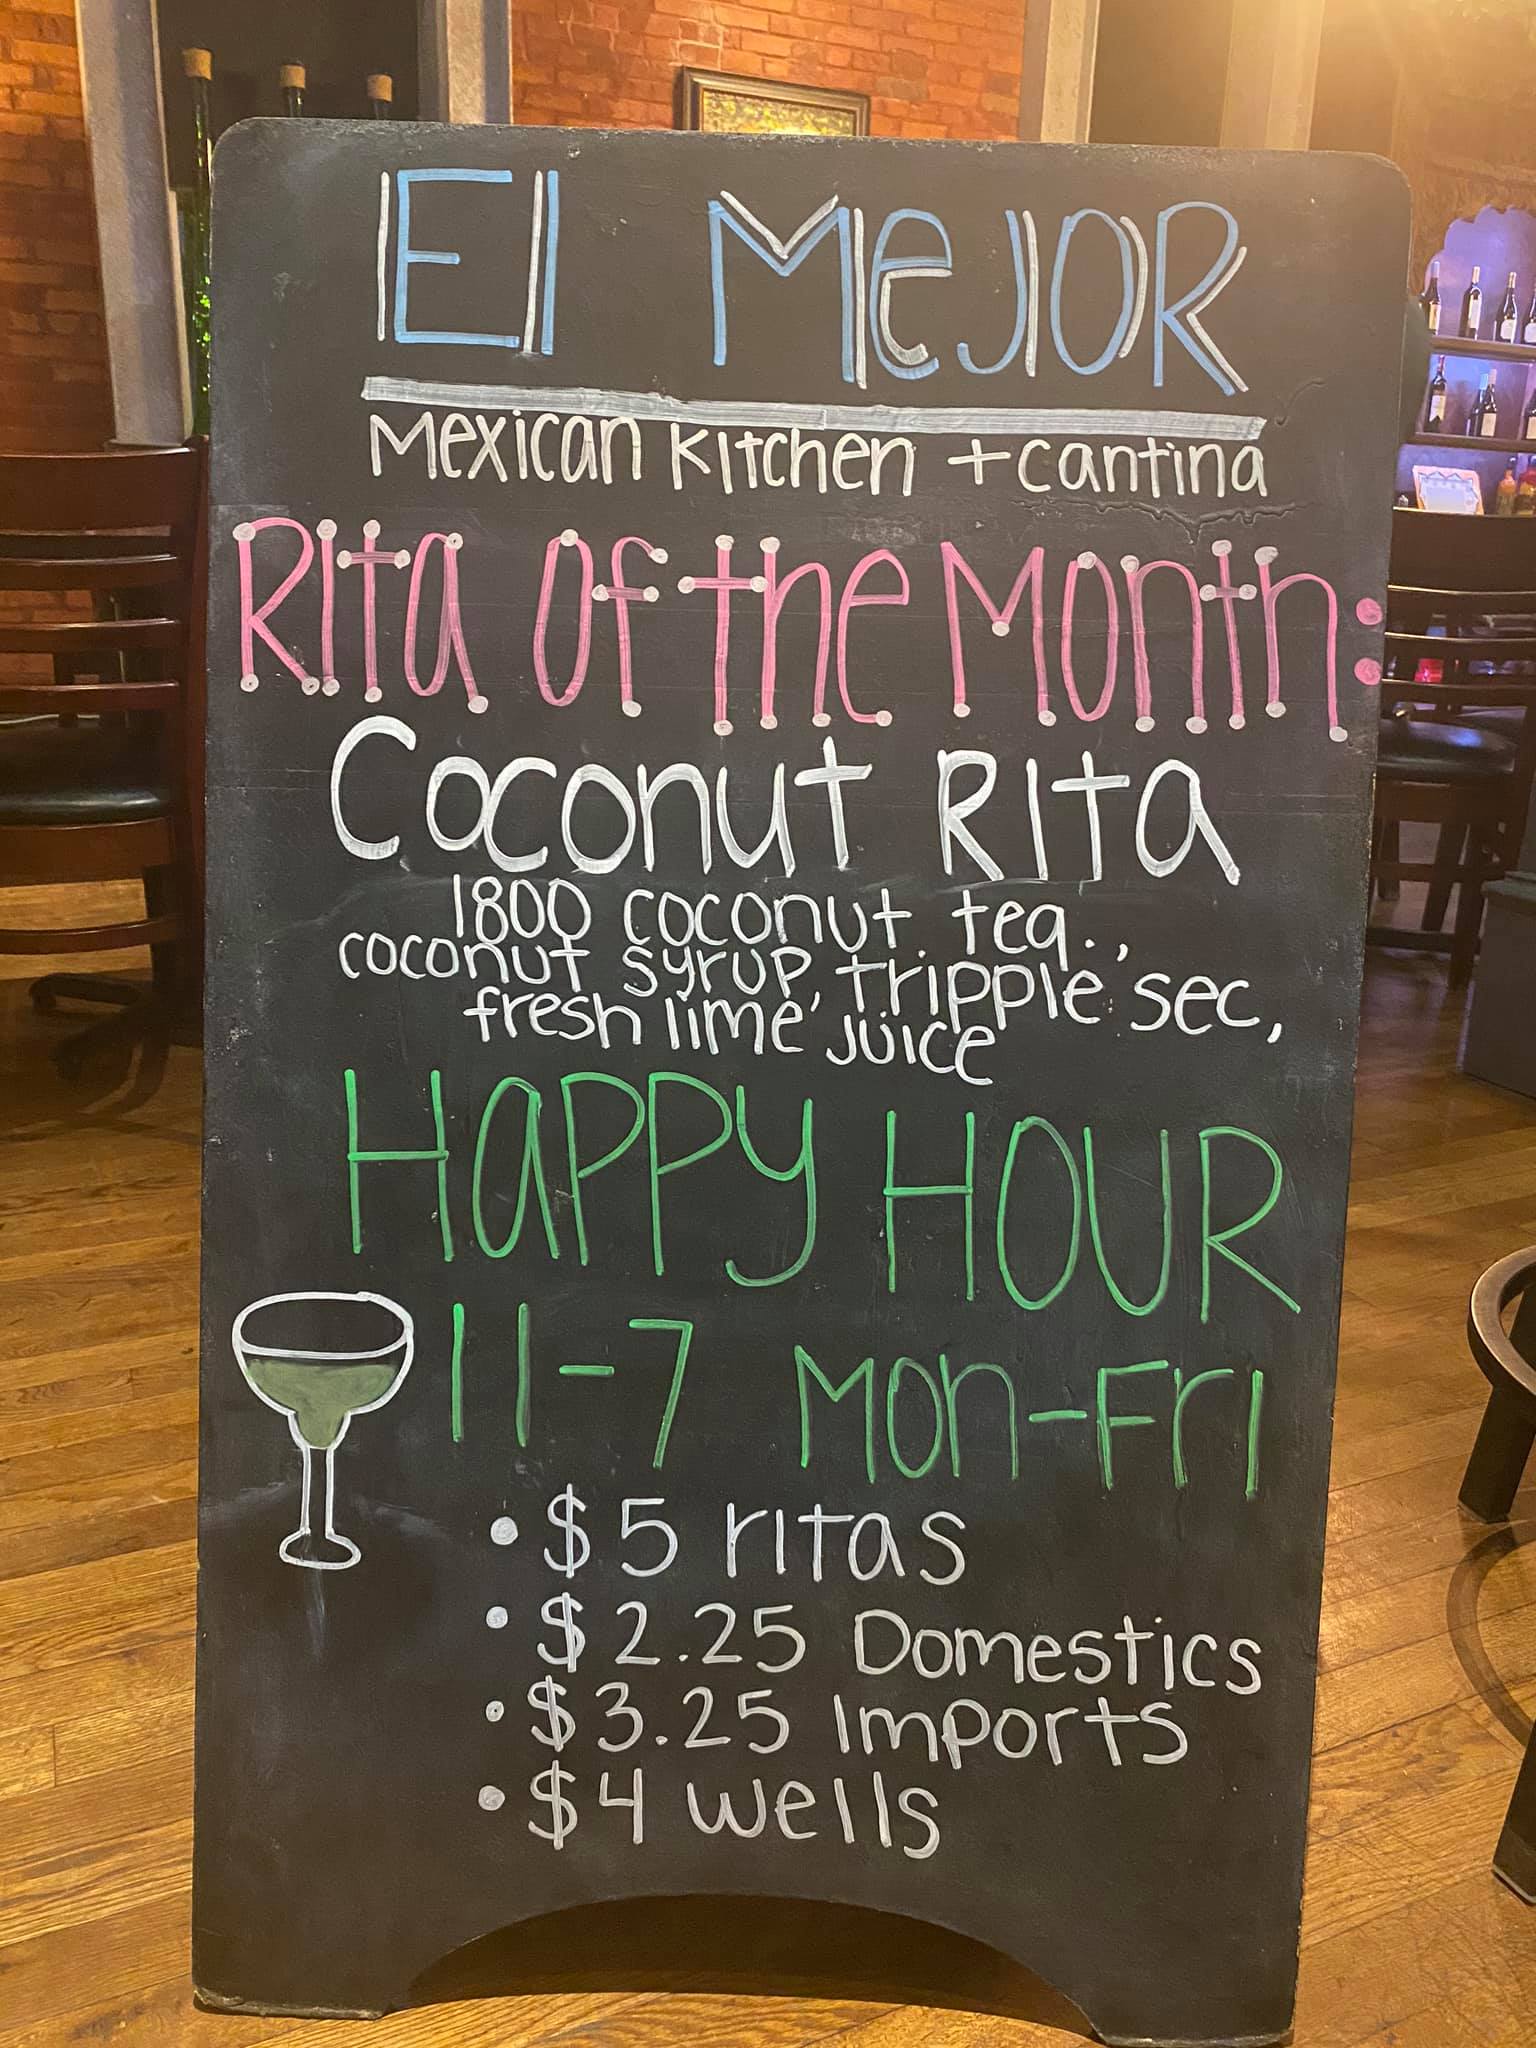 El MeJOR
Mexican Kitchen + cantina
Rita of the Month:
Coconut Rita
1800 coconut teq.,
coconut syrup, tripple sec,
fresh lime juice
HaPPy HOUR
11-7 Mon-Fri
• $5 ritas
• $2.25 Domestics
• $3.25 Imports
• $4 wells